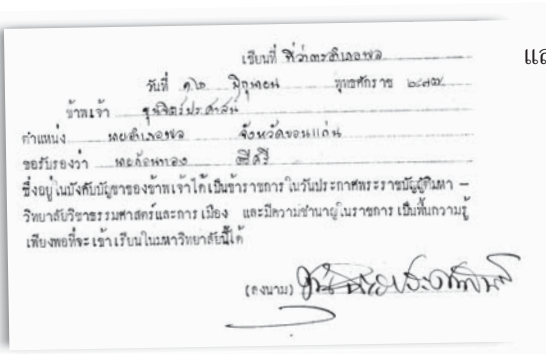 เขียนที่ ที่ว่าการอำเภอพล
วันที่ ๑๖ มิถุนายน พุทธศักราช ๒๔๗๗
ข้าพเจ้า ขุนจิตรประศาสน์
ตำแหน่ง นายอำเภอพล จังหวัดขอนแก่น
ขอรับรองว่า นายก้อนทอง
ซึ่งอยู่ในบังคับบัญชาของข้าพเจ้าได้เป็นข้าราชการในวันประกาศพระราชบัญญัติมหา –
วิทยาลัยวิชาธรรมศาสตร์และการเมือง และมีความชำนาญในราชการ เป็นพื้นความรู้
เพียงพอที่จะเข้าเรียนในมหาวิทยาลัยนี้ได้
(ลงนาม)
แล